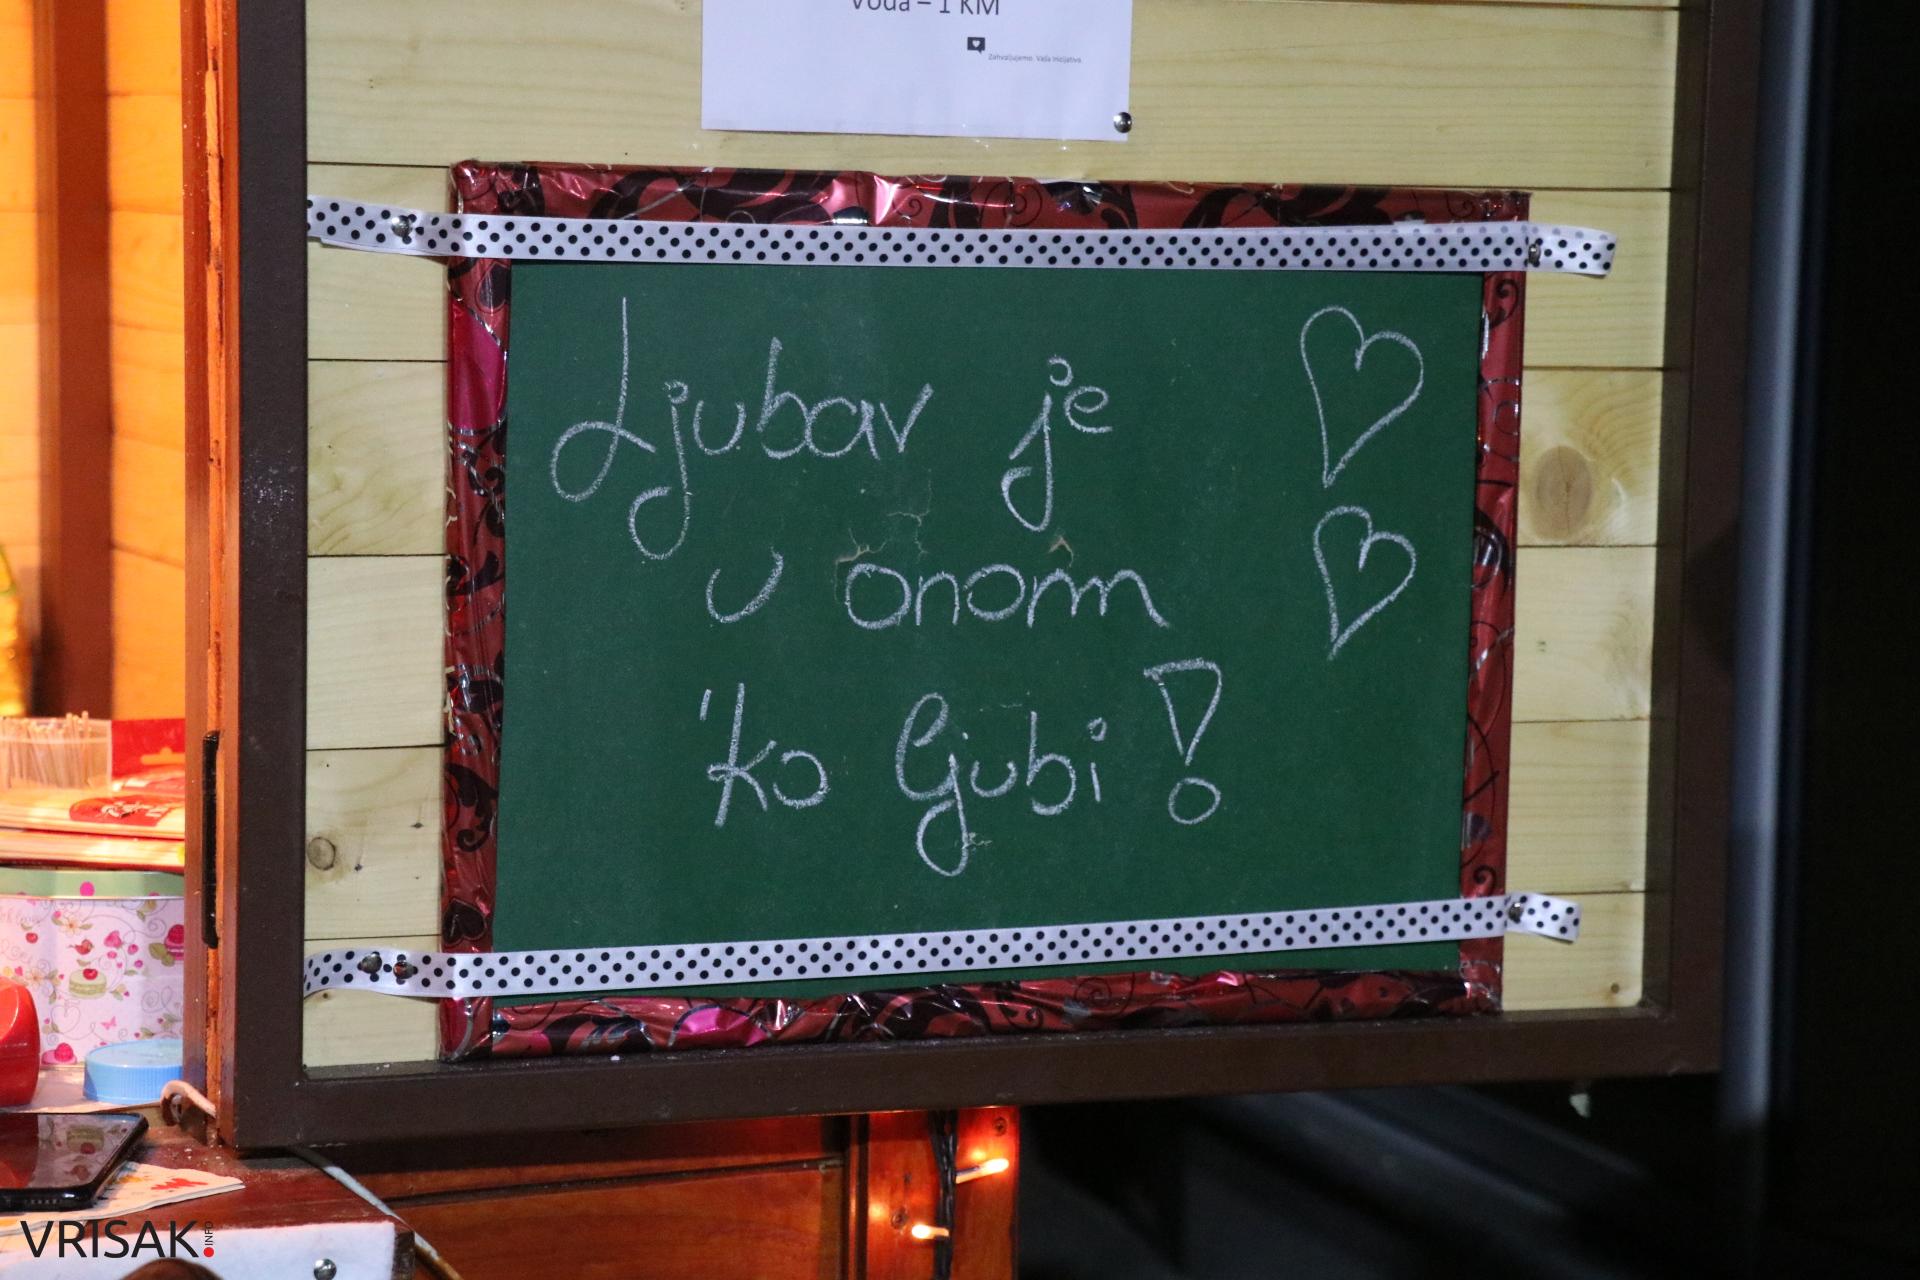 Voda – 1 KM
Zahvaljujemo. Vaša Inicijativa.
Ljubav je
u onom
'ko ljubi!
VRISAK.INFO